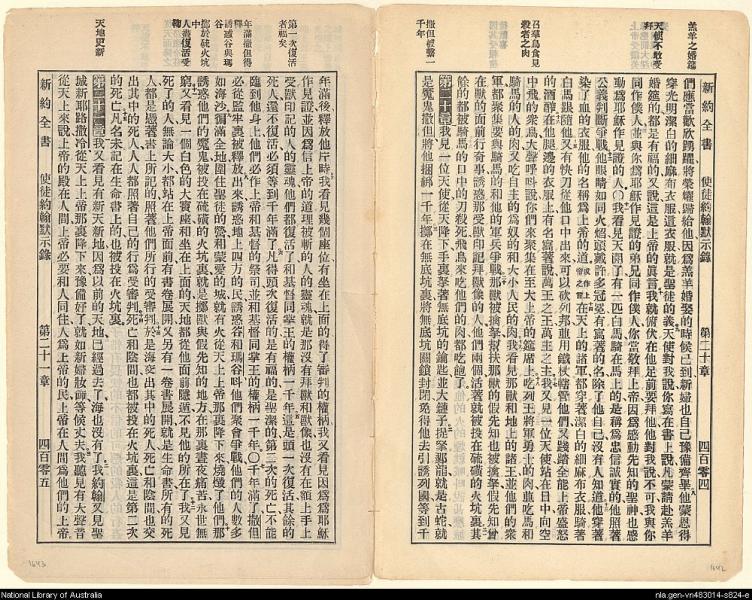 羔羊之婚筵
天使不敢受拜
召羣鳥食見殺者之肉
撒但被繫一千年
新約全書 使徒約翰默示錄 第二十章 四百零四
們應當歡欣踴躍將榮耀歸給他因爲羔羊婚娶的時候已到新婦也自己豫備齊畢他蒙恩得
穿光明潔白的細麻布衣服這衣服就是聖徒的義天使對我說你寫在書上說凡蒙請赴羔羊
婚筵的都是有福的又說這是上帝的眞言我就俯伏在他足前要拜他他對我說不可我與你
同作僕人並與你爲耶穌作見證的弟兄同作僕人你當敬拜上帝因爲感動先知的聖神也感
動爲耶穌作見證的人〇我看見天開了有一匹白馬騎在馬上的是稱爲忠信誠實的他照著
公義判斷爭戰他眼睛如同火焰頭戴許多冠冕有寫著的名除了他自己沒有人知道他穿著
染了血的衣服他的名稱爲上帝的道在天上的諸軍都穿著潔白的細麻布衣服騎著
白馬跟隨他又有快刀從他口中出來可以砍列邦並用鐵杖轄管他們又踐踏全能上帝盛怒
的酒醡在他腿邊的衣服上有名寫著說萬王之王萬主之主我又見一位天使站在日中向空
中飛的衆鳥大聲呼呌說你們來聚集在至大上帝的筵席上吃列王將軍勇士的肉並吃馬和
騎馬的人的肉又吃自主的爲奴的和大小人民的肉我看見那獸和地上的諸王並他們的衆
軍都聚集要與騎馬的和他的軍兵爭戰那獸被擒拏幫扶那獸的假先知也被擒拏假先知曾
在獸的面前行奇事誘惑那受獸印記拜獸像的人他們兩個活著就被投在硫磺的火坑裏其
餘的都被騎馬的口中的刀殺死飛鳥來吃他們的肉都吃飽了
第二十章我見一位天使從天降下手裏拏著無底坑的鑰匙並大鏈子捉拏那龍就是古蛇就
是魔鬼撒但將他捆綁一千年扔在無底坑裏將無底坑關鎖封閉免得他去引誘列國等到千
第一次復活者福矣
年滿撒但得釋
誘惑谷與瑪谷
擲於硫火坑中
人盡復活受鞫
天地更新
年滿後釋放他片時我看見幾個座位有坐在上面的得了審判的權柄我又看見因爲爲耶穌
作見證並因爲信上帝的道理被斬的人的靈魂就是那沒有拜獸和獸像也沒有在額上手上
受獸印記的人的靈魂他們都復活了和基督同掌王的權柄一千年這是頭一次復活其餘的
死人還不復活必須等到千年滿了凡得頭次復活的是有福的是聖潔的第二次的死亡不能
臨到他身上他們必作上帝和基督的祭司並和基督同掌王的權柄一千年〇千年滿了撒但
必從監牢裏被釋放出來誘惑地上四方的民誘惑谷和瑪谷呌他們聚會爭戰他們的人數多
如海沙徧滿全地圍住聖徒的營和蒙愛的城就有火從天上上帝那裏降下來燒燬了他們那
誘惑他們的魔鬼被投在硫磺的火坑裏就是擲獸與假先知的地方在那裏晝夜痛苦永世無
窮又看見一個白色的大寶座和坐在上面的天地都從他面前隱遁不見他的所在了我又見
死了的人無論大小都站在上帝面前有書卷展開又另有一卷書展開就是生命書所有的死
人都是憑著書上所記的照著他們所行的受審判於是海交出其中的死人死亡和陰間也交
出其中的死人人人都照著自己的行爲受審判死亡和陰間也都被投在火坑裏這是第二次
的死亡凡名未記在生命書上的也被投在火坑裏
第二十一章我又看見有新天新地因爲以前的天地已經過去了海也沒有了我約翰又見聖
城新耶路撒冷從天上上帝那裏降下來豫備好了就如新婦妝飾等候丈夫我聽見有大聲音
從天上來說上帝的殿在人間上帝必要和人同住人爲上帝的民上帝在人間爲他們的上帝
新約全書 使徒約翰默示錄 第二十一章 四百零五
1643
1642
National Library of Australia
nla.gen-vn483014-s824-e